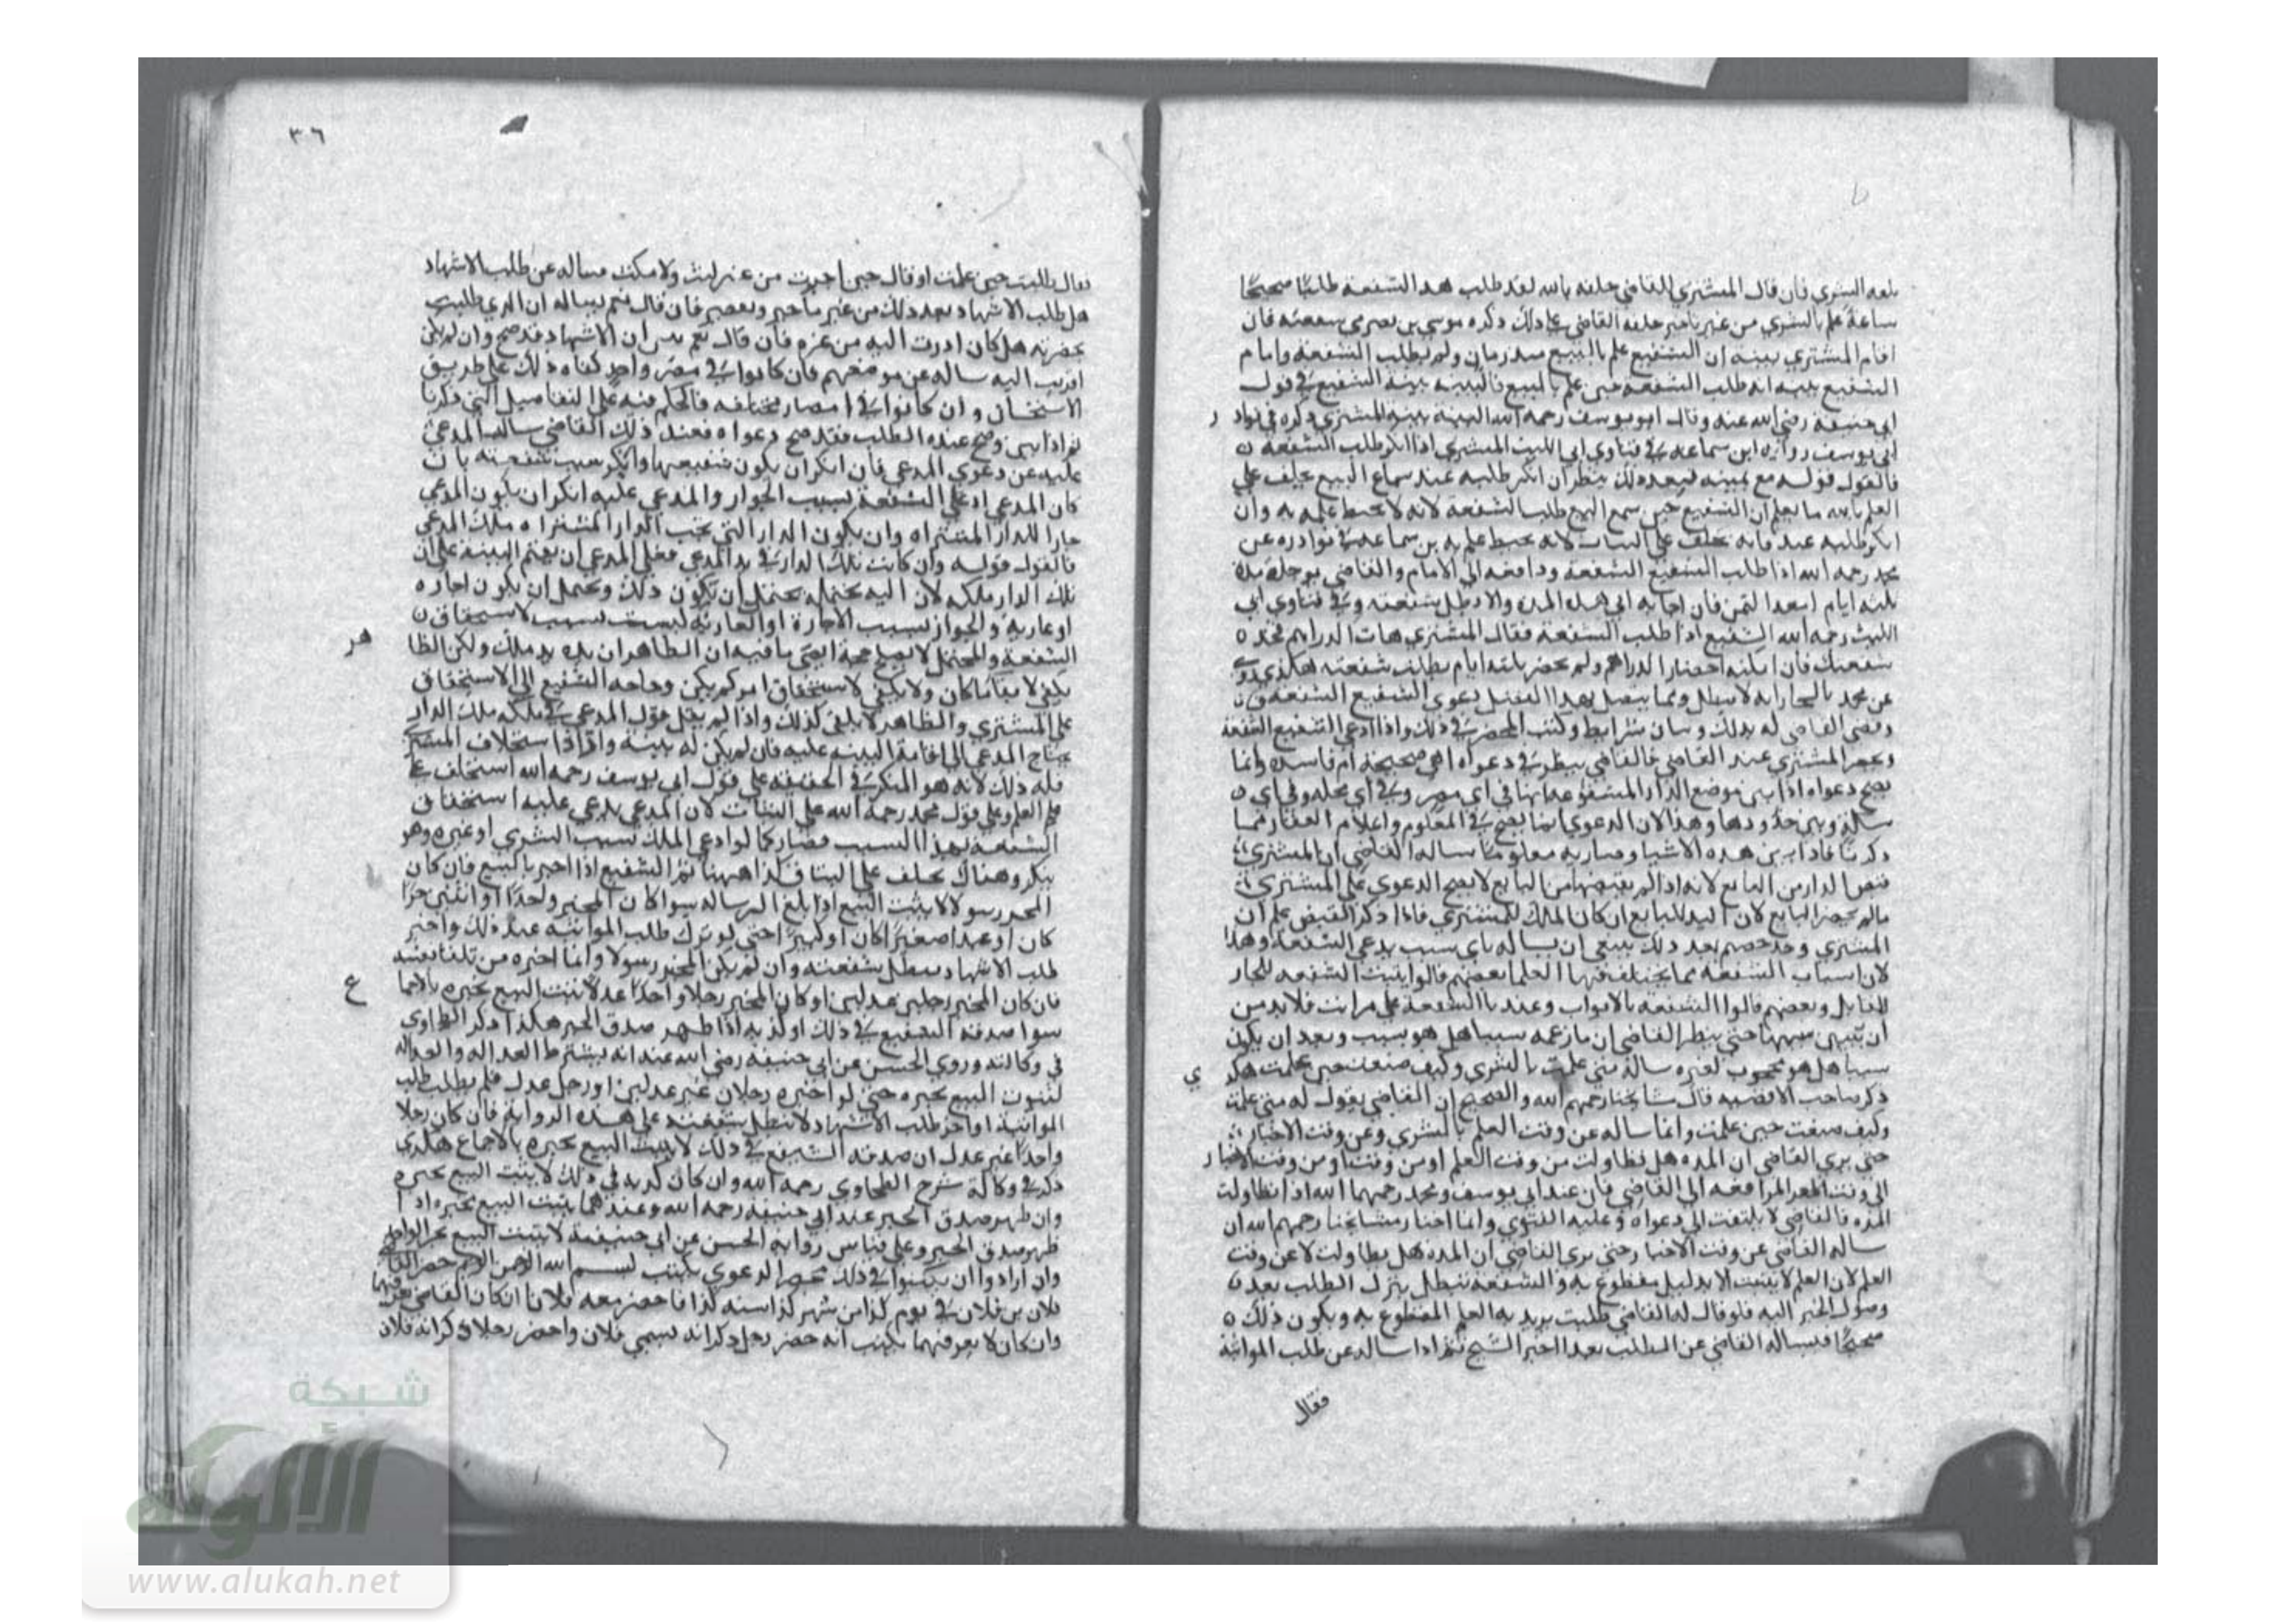 بلغه الشري فان قال المشتري للقاضي حلفه بالله لقد طلب هذه الشفعة طلبًا صحيحًا
ساعة علم بالشري من غير تاخير حلفه القاضي على ذلك ذكره موسي بن نصر في شفعته فان
اقام المشتري بينه ان الشفيع علم بالبيع منذ زمان ولم يطلب الشفعة واقام
الشفيع بينه انه طلب الشفعة حين علم بالبيع فالبينه بينة الشفيع في قول
ابي حنيفة رضي الله عنه وقال ابو يوسف رحمه الله البينه بينة المشتري ذكره في نواد ر
ابي يوسف رواية ابن سماعه في فتاوي ابي الليث المشتري اذا انكر طلب الشفعة
فالقول قوله مع يمينه فبعد ذلك ينظر ان انكر طلبه عند سماع البيع يحلف علي
العلم بالله ما يعلم ان الشفيع حين سمع البيع طلب الشفعة لانه لا يحيط علمه به وان
انكر طلبه عند فانه يحلف علي البتات لانه يحيط علمه به بن سماعة في نوادره عن
محمد رحمه الله اذا طلب الشفيع الشفعة ودافعه الي الامام والقاضي يوجله مدة
ثلثه ايام لنقد الثمن فان اجابه الي هذه المدة والا بطل شفعته وفي فتاوي ابي
الليث رحمه الله الشفيع اذا طلب الشفعة فقال المشتري هات الدراهم فخذ
شفعتك فان امكنه احضار الدراهم ولم يحضر ثلثه ايام بطلت شفعته هكذي روي
عن محمد بالبخارا انه لا تبطل ومما يتصل بهذا الفصل دعوي الشفيع الشفعة
وقضي القاضي له بذلك وبيان شرايط وكتب المحضر في ذلك واذا ادعي الشفيع الشفعة
وحضر المشتري عند القاضي فالقاضي ينظر في دعواه اهي صحيحة ام فاسده وانما
يصح دعواه اذا بين موضع الدار المشفوعة انها في اي مصر وفي اي محله وفي اي
سكة وبين حدودها وهذا لان الدعوي انما يصح في المعلوم واعلام العقار فيما
ذكرنا فاذا بين هذه الاشيا وصاربه معلومًا ساله القاضي ان المشتري
قبض الدار من البايع لانه اذا لم يقبضها من البايع لا يصح الدعوي علي المشتري
مالم يحضر البايع لان اليد للبايع ان كان الملك للمشتري فاذا ذكر القبض علم ان
المشتري وحده خصم بعد ذلك ينبغي ان يساله باي سبب يدعي الشفعة وهذا
لان اسباب الشفعة مما يختلف فيها العلما بعضهم قالوا يثبت الشفعه للجار
المقابل وبعضهم قالوا الشفعه بالابواب وعندنا الشفعة علي مراتب فلابد من
ان يبين سببها حتي ينظر القاضي ان ما زعمه سببا هل هو سبب وبعد ان يكون
سببا هل هو محجوب لغيره ساله متي علمت بالشري وكيف صنعت حين علمت هكذ ي
ذكر صاحب الاقضيه قال مشايخنا رحمهم الله والصحيح ان القاضي يقول له متي علمت
وكيف صنعت حين علمت وانما ساله عن وقت العلم بالشري وعن وقت الاخبار
حتي يري القاضي ان المده هل تطاولت من وقت العلم او من وقت او من وقت الاخبار
الي وقت المرافعه الي القاضي فان عند ابي يوسف ومحمد رحمهما الله اذا تطاولت
المده فالقاضي لا يلتفت الي دعواه وعليه الفتوي وانما اختار مشايخنا رحمهم الله ان
ساله القاضي عن وقت الاخبار حتي يري القاضي ان المده هل تطاولت لا عن وقت
العلم لان العلم لا يثبت الا بدليل مقطوع به والشفعة تبطل بترك الطلب بعد
وصول الخبر اليه فلو قال له القاضي طلبت يريد به العلم المقطوع به ويكون ذلك
صحيحًا فيساله القاضي عن الطلب بعدا اخبر الشيخ ثم اذا ساله عن طلب المواثبة
فقال
٣٦
فقال طلبت حين علمت او قال حين اخبرت من غير لبث ولا مكث مساله عن طلب الاشهاد
هل طلب الاشهاد بعد ذلك من غير تاخير وتقصير فان قال نعم يساله ان الذي طلبت
بحضرته هل كان اقرب اليه من غيره فان قال نعم تبين ان الاشهاد قد صح وان لم يكن
اقرب اليه ساله عن موضعهم فان كانوا في مصر واحد كفاه ذلك علي طريق
الاستحسان وان كانوا في امصار مختلفه فالحكم فيه علي التفاصيل التي ذكرنا
ثم اذا تبين وصح عنده الطلب فقد صح دعواه فعند ذلك القاضي سال المدعي
عليه عن دعوي المدعي فان انكر ان يكون شفيعها وانكر سبب شفعته بان
كان المدعي ادعي الشفعة بسبب الجوار والمدعي عليه انكر ان يكون المدعي
جارا للدار المشتراه وان يكون الدار التي بجنب الدار المشتراه ملك المدعي
فالقول قوله وان كانت تلك الدار في يد المدعي فعلي المدعي ان يقيم البينة علي ان
تلك الدار ملكه لان اليد محتمله يحتمل ان يكون ذلك ويحتمل ان يكون اجاره
او عاريه والجواز بسبب الاجارة او العارية ليست بسبب لاستحقاق
الشفعة والمحتمل لا يصلح حجة اقصي ما فيه ان الظاهر ان يده يد ملك ولكن الظا هر
يكفي لا بقاء ما كان ولا يكفي لاستحقاق امر كم يكن وحاجه الشفيع الي الاستحقاق
علي المشتري والظاهر لا يكفي كذلك واذا لم يقبل قول المدعي في ملكه ملك الدار
يحتاج المدعي الي اقامة البينه عليه فان لم يكن له بينة وارادا ستحلاف المشتري
فله ذلك لانه هو المنكر في الحقيقه علي قول ابي يوسف رحمه الله استحلف علي
علم العلم وعلي قول محمد رحمه الله علي البتات لان المدعي يدعي عليه استحقاق
الشفعة بهذا السبب فصار كما لو ادعي الملك بسبب الشري او غيره وهو
ينكر وهناك يحلف علي البتات فكذا ههنا ثم الشفيع اذا اخبر بالبيع فان كان
المخبر رسولا لا يثبت البيع اذا بلغ الرساله سوا كان المخبر واحدًا او اثنين حرًا
كان او عبدا صغيرًا كان او كبيرًا حتي لو ترك طلب المواثبه عند ذلك واخر
طلب الاشهاد يبطل شفعته وان لم يكن المخبر رسولا وانما اخبره من تلقا نفسه
فان كان المخبر رجلين عدلين او كان المخبر رجلا واحدًا عدلا يثبت البيع بخبره بالاجما ع
سوا صدقه الشفيع في ذلك او كذبه اذا ظهر صدق الخبر هكذا ذكر الطحاوي
في وكالته وروي الحسن عن ابي حنيفة رضي الله عنه انه يشترط العداله والعداله
لثبوت البيع بخبره حتي لو اخبره رجلان غير عدلين او رجل عدل فلم يطلب طلب
المواثبة او اخر طلب الاشهاد لا تبطل شفعته علي هذه الرواية فان كان رجلا
واحدًا غير عدل ان صدقه الشفيع في ذلك لا يثبت البيع بخبره بالاجماع هكذي
ذكر في وكالة شرح الطحاوي رحمه الله وان كان كذبه في ذلك لا يثبت البيع بخبره
وان ظهر صدق الخبر عند ابي حنيفة رحمه الله وعندهما يثبت البيع بخبره اذا
ظهر صدق الخبر وعلي قياس رواية الحسن عن ابي حنيفة لا يثبت البيع بخبر الواحد
وان ارادوا ان يكتبوا في ذلك محضر الدعوي يكتب بسم الله الرحمن الرحيم حضر القاضي
فلان بن فلان في يوم كذا من شهر كذا سنه كذا فاحضر معه فلانا ان كان القاضي يعرفهما
وان كان لا يعرفهما يكتب انه حضر رجل ذكر انه يسمي فلان واحضر رجلا ذكر انه فلان
شبكة
الألوكة
www.alukah.net